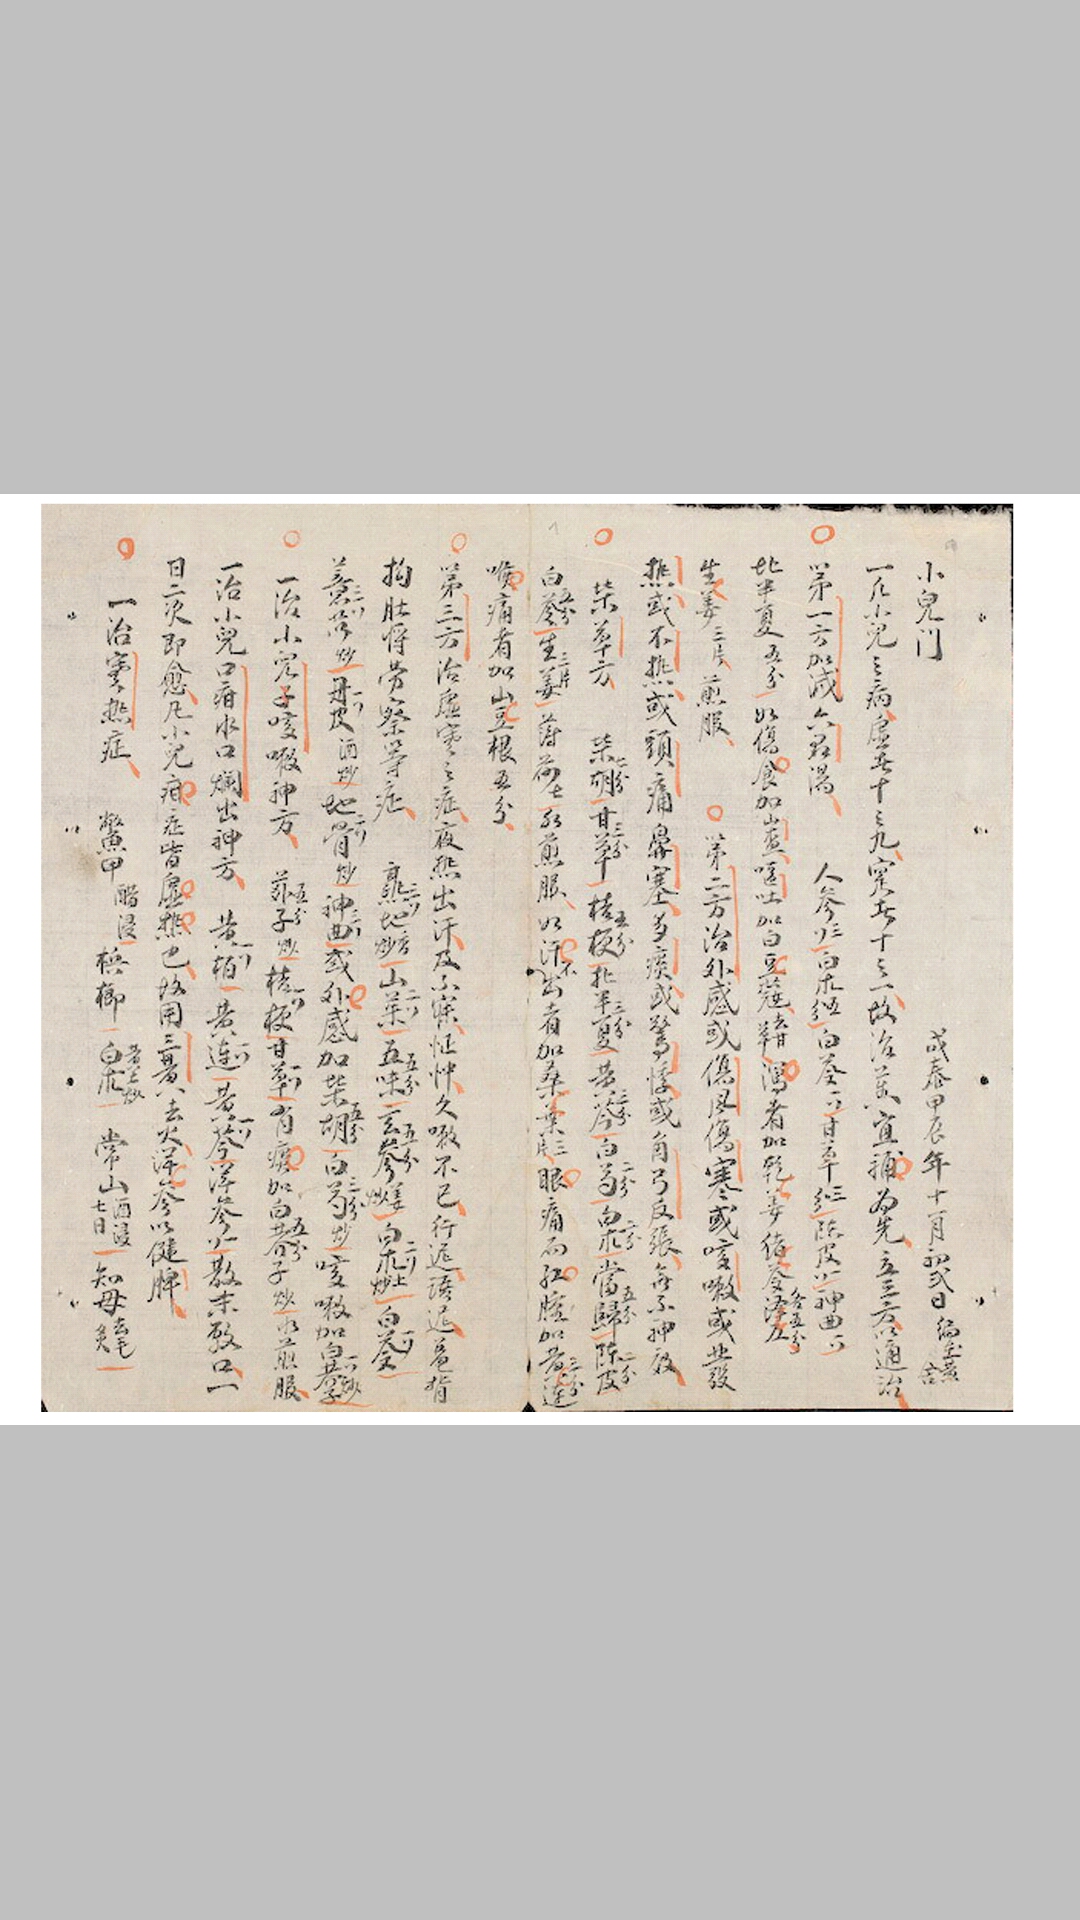 小兒门
成泰甲辰年十一月初弍日
一凡小兒之病虛者十之九寔者十之一故治法宜補為先立三方以通治
第一方加減六君湯 人參 白朮 白苓 甘草 陳皮 神曲
北半夏五分 如傷食加山查嘔吐加白豆蔻 瀉者加乾姜猪苓澤瀉各五分
生姜三片煎服 第二方治外感或傷風傷寒或咳嗽或發
熱或不熱或頭痛鼻塞多痰或驚悸或角弓反張
柴草方 柴胡七分 甘草三分 桔梗五分 北半夏三分 黄芩三分 白芍二分 白朮二分 當歸五分 陳皮二分
白苓五分 生姜三片 薄荷七 煎服如汗不出者加桑葉三片眼痛而紅腫加黄連三分
喉痛者加山豆根五分
第三方治虛寒之症夜熱出汗及不寐怔忡久嗽不已行遲語遲
拘肚 勞瘵等症 熟地 炒 山藥 五味五分 玄參五分 白朮土炒 白苓
薏苡三炒 丹皮酒炒 地骨炒 神曲 或外感加柴胡五分 白芍三分炒 咳嗽加白芥子炒
一治小兒子咳嗽神方 蘇子五分炒 桔梗 甘草 有痰加白芥子五分炒 水煎服
一治小兒口疳水口爛出神方 黄栢 黄連 黄芩 洋參 散末敷口一
日二次即愈凡小兒疳症皆虛熱也故用三黄以去火洋參以健脾
一治寔熱症 鱉甲醋浸 檳榔 白朮黄土炒 常山酒浸七日 知母去毛